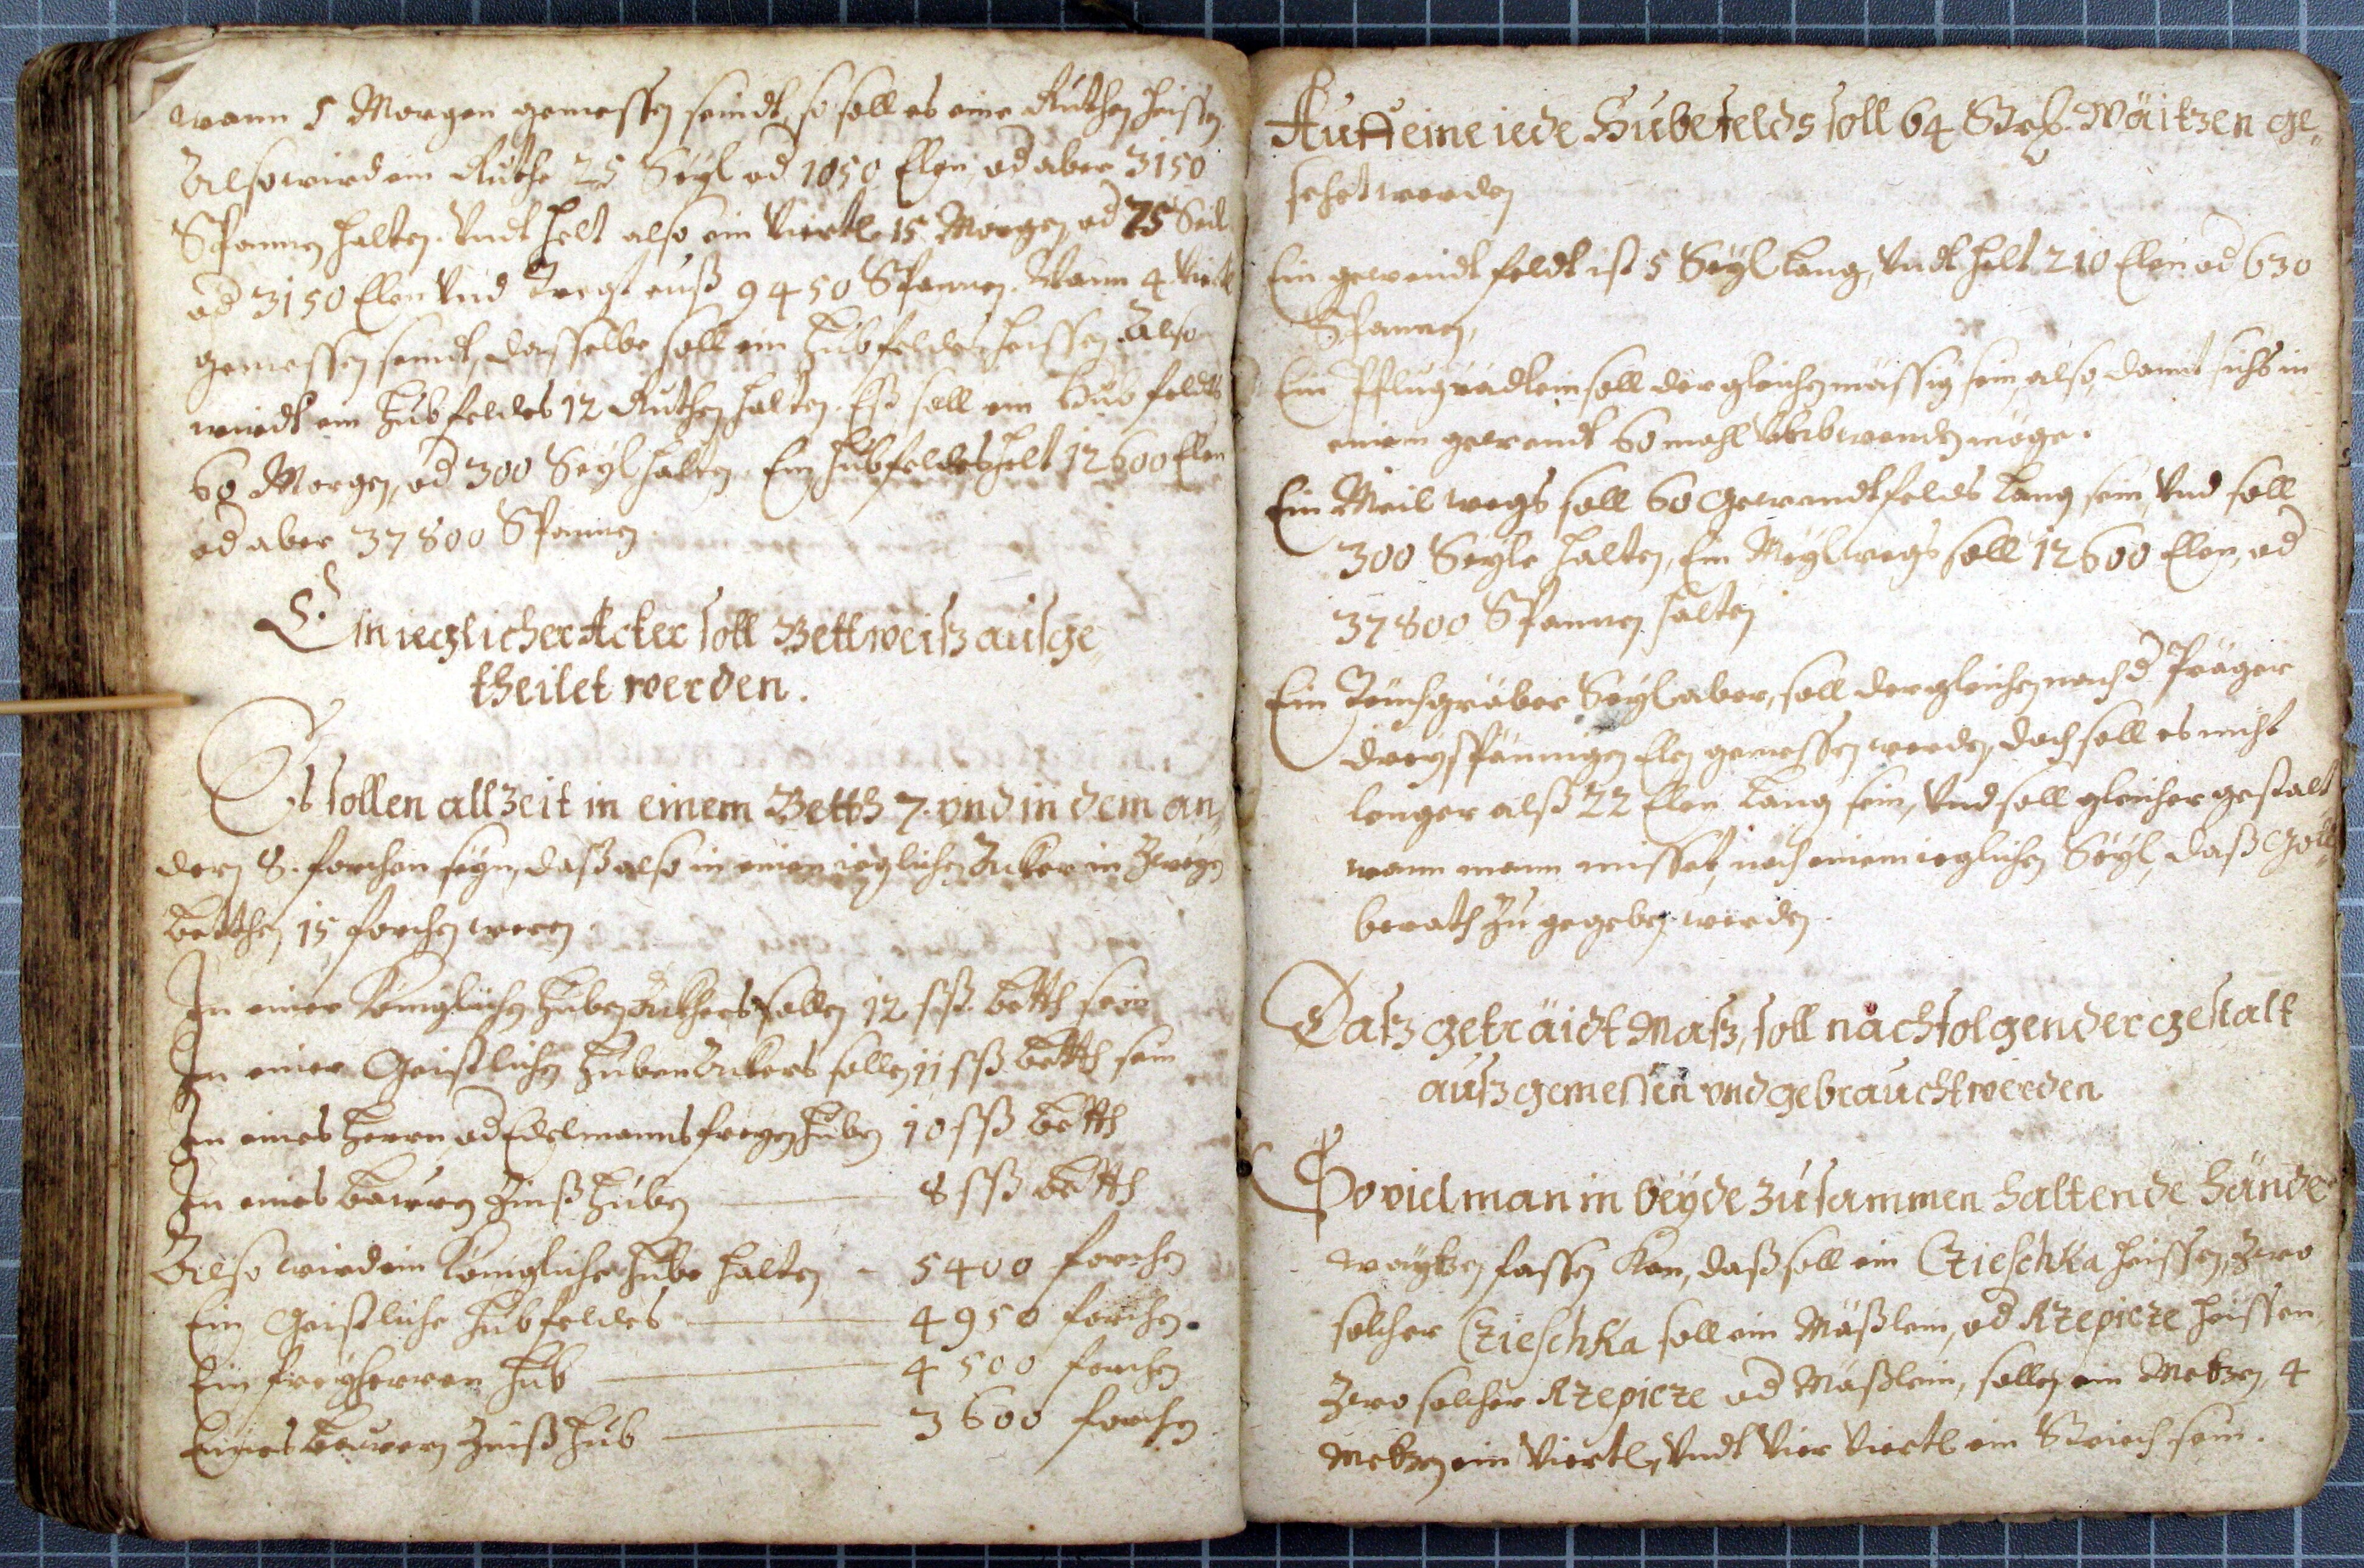 wann 5 Morgen gemessen seindt, so soll es eine Ruthen heissen
Also wird ein Ruthe 25 Seyl od 1050 Elen, od aber 3150
Spannen halten. Vndt helt also ein Viertl 15 Morgen, od 75 Seil
od 3150 Elen Vnd tregt auß 9450 Spannen. Wann 4 Viertl
gemessen seindt, dasselbe soll ein Hubfeldes heissen Also
wirdt ein Hubfeldes 12 Ruthen halten. Eß soll ein Hub feldes
60 Morgen, od 300 Seyl halten. Ein hubfeldes helt 12600 Elen
od aber 37800 Spannen
Ein ieglicher Acker soll Bettweiß aussge„
theilet werden.
Es sollen allzeit in einem Betth 7. vnd in dem an„
dern 8. forchen seyn, daß also in einen ieglichen Acker in Zweyen
betthen 15 forchen weren
In einer Königlichen Huben Ackhers sollen 12 ßß. betth sein
In einer Geistlichen Huben Ackers sollen 11 ßß betth sein
In eines Herrn, od Edelmanns freyen Huben 10 ßß betth
In eines bauren Zinß Huben 8 ßß betth
Also wird ein Königliche Hube halten - 5400 forchen
Ein Geistliche Hubfeldes 4950 forchen.
Ein freyherren Hub 4500 forchen
Eines bauren Zinß Hub 3600 forchen
Auff eine iede Hubefelds soll 64 Str. Wäitzen ge„
sehet werden
Ein gewendt feldt ist 5 Seyl lang, Vndt helt 210 Elen od 630
Spannen,
Ein Pflugrädlein soll dergleichen mässig sein, also, damit sichs in
einem gewendt 60 mahl umbwenden möge.
Ein Meil wegs soll 60 Gewendtfelds lang sein, Vnd soll
300 Seyle halten, Ein Meylwegs soll 12600 Ellen, od
37800 Spannen halten
Ein Teuchgräber Seyl aber, soll dergleichen nach d Präger
dreyspännigen Elen gemessen werden, doch soll es nicht
lenger alß 22 Elen lang sein, Vnd soll gleicher gestalt
wann mann misset, nach einem ieglichen Seyl, daß
zu gegeben werden.
Daß geträidt Maß, soll nachfolgender gestalt
auß gemessen vnd gebraucht werden
So viel man in beyde zusammen haltende hände
waytzen fassen kan, daß soll ein Czieschka heissen, Zwo
solcher Czieschka soll ein Mäßlein, od Rzepicze heissen
Zwo solcher Rzepicze od Mäßlein, sollen ein Metzen, 4
Metzen ein Viertl, Vndt Vier Viertl ein Striech sein.